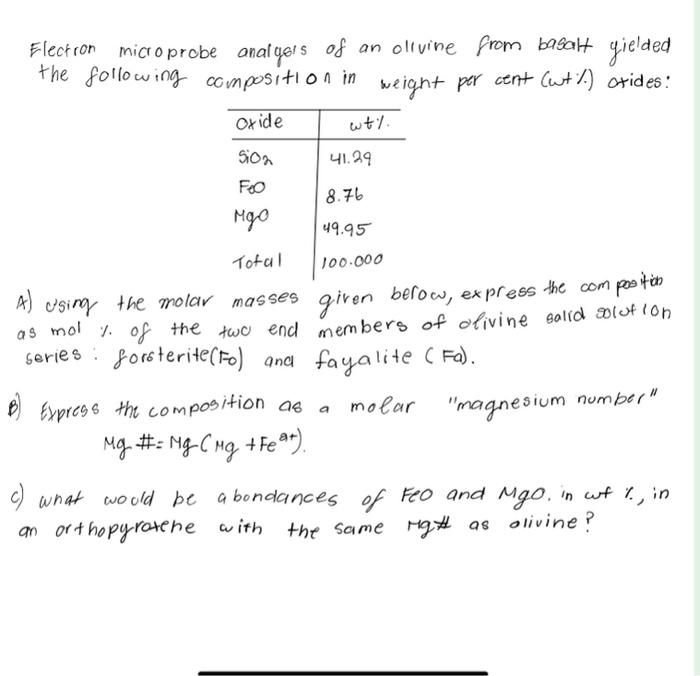 Electron microprobe analyers of an olivine from basalt yielded
the following composition in weight per cent (wt%) oxides:
Oxide wt%.
SiO2 41.29
FeO 8.76
MgO 49.95
Total 100.000
A) Using the molar masses given below, express the composition
as mol % of the two end members of olivine solid solution
series : forsterite(Fo) and fayalite (Fa).
B) Express the composition as a molar "magnesium number"
Mg #= Mg (Mg + Fe2+).
C) what would be abondances of FeO and MgO. in wt %, in
an orthopyroxene with the same Mg# as olivine?